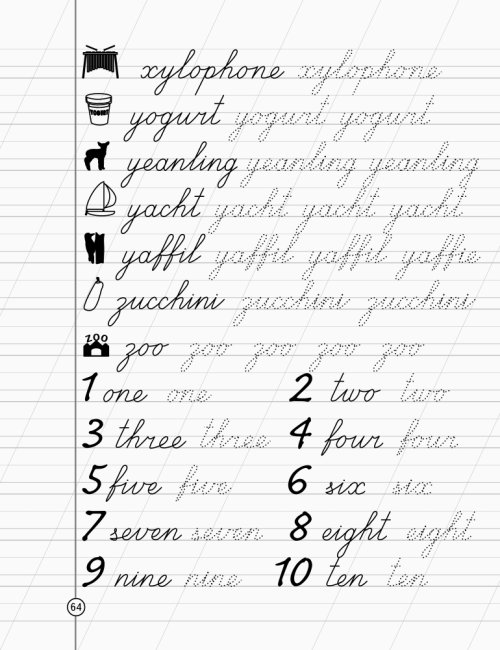 xylophone xylophone
YOGURT yogurt yogurt yogurt
yeanling yeanling yeanling
yacht yacht yacht yacht
yaffil yaffil yaffil yaffie
zucchini zucchini zucchini
ZOO zoo zoo zoo zoo zoo
1 one one 2 two two
3 three three 4 four four
5 five five 6 six six
7 seven seven 8 eight eight
9 nine nine 10 ten ten
64